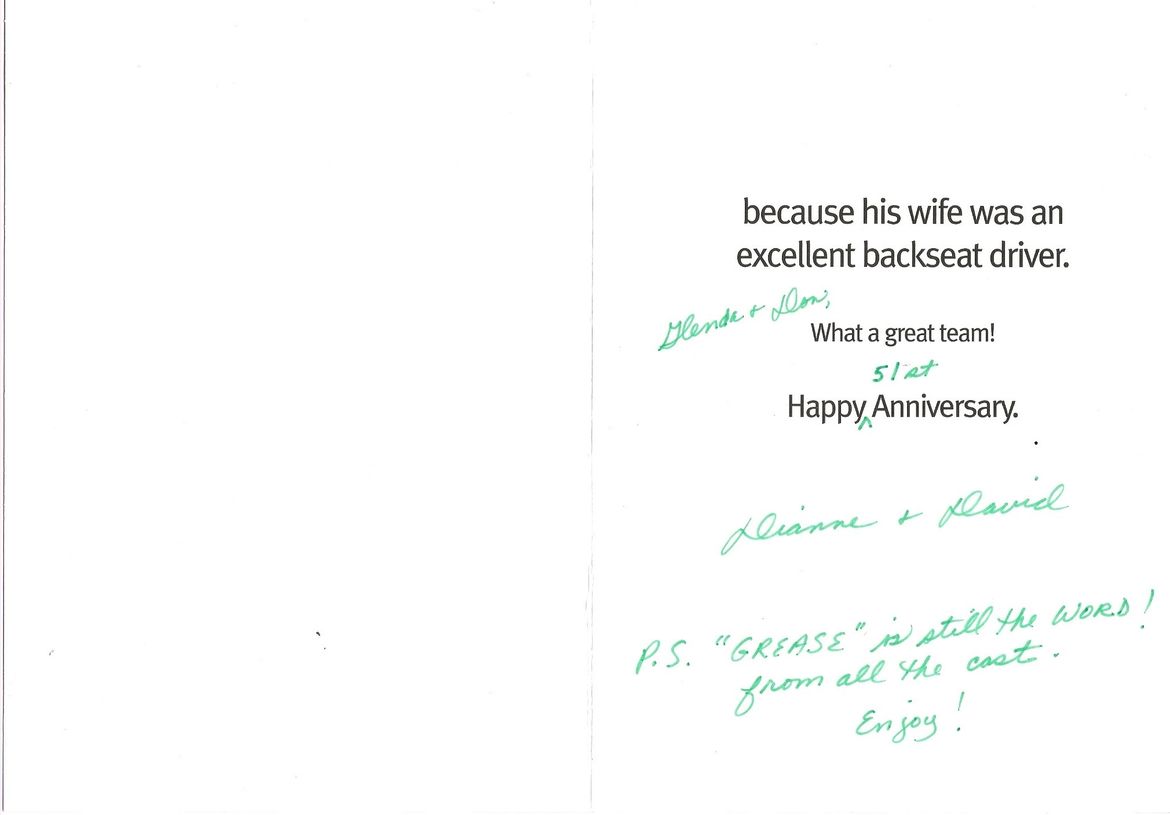 because his wife was an
excellent backseat driver.
Glenda + Don,
What a great team!
51st
Happy ^ Anniversary.
Dianne + David
P.S. "GREASE" is still the WORD!
from all the cast.
Enjoy!